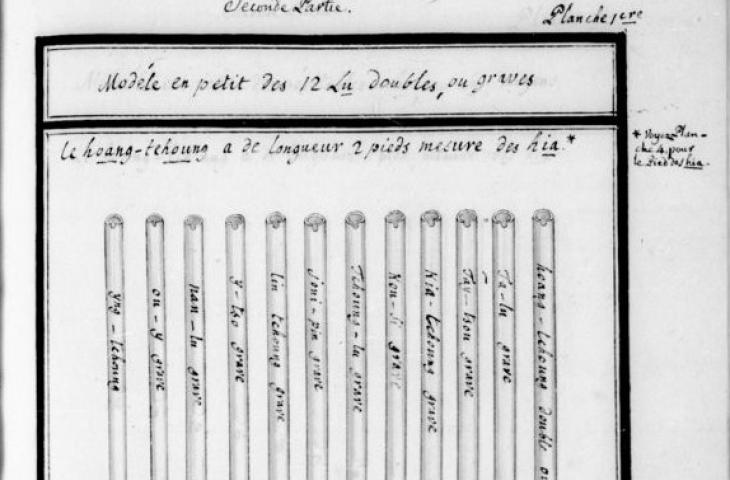 Seconde Partie.
Planche 1ere
Modéle en petit des 12 Lu doubles, ou graves
le hoang-tchoung a de longueur 2 pieds mesure des hia.*
* Voyez Plan-
che 4. pour
le Pied des hia.
yng-tchoung
ou-y grave
nan-lu grave
y-tso grave
lin tchoung grave
joui-pin grave
Tchoung-lu grave
Kou-si grave
Kia-tchoung grave
Tay-tsou grave
Ta-lu grave
hoang-tchoung double ou